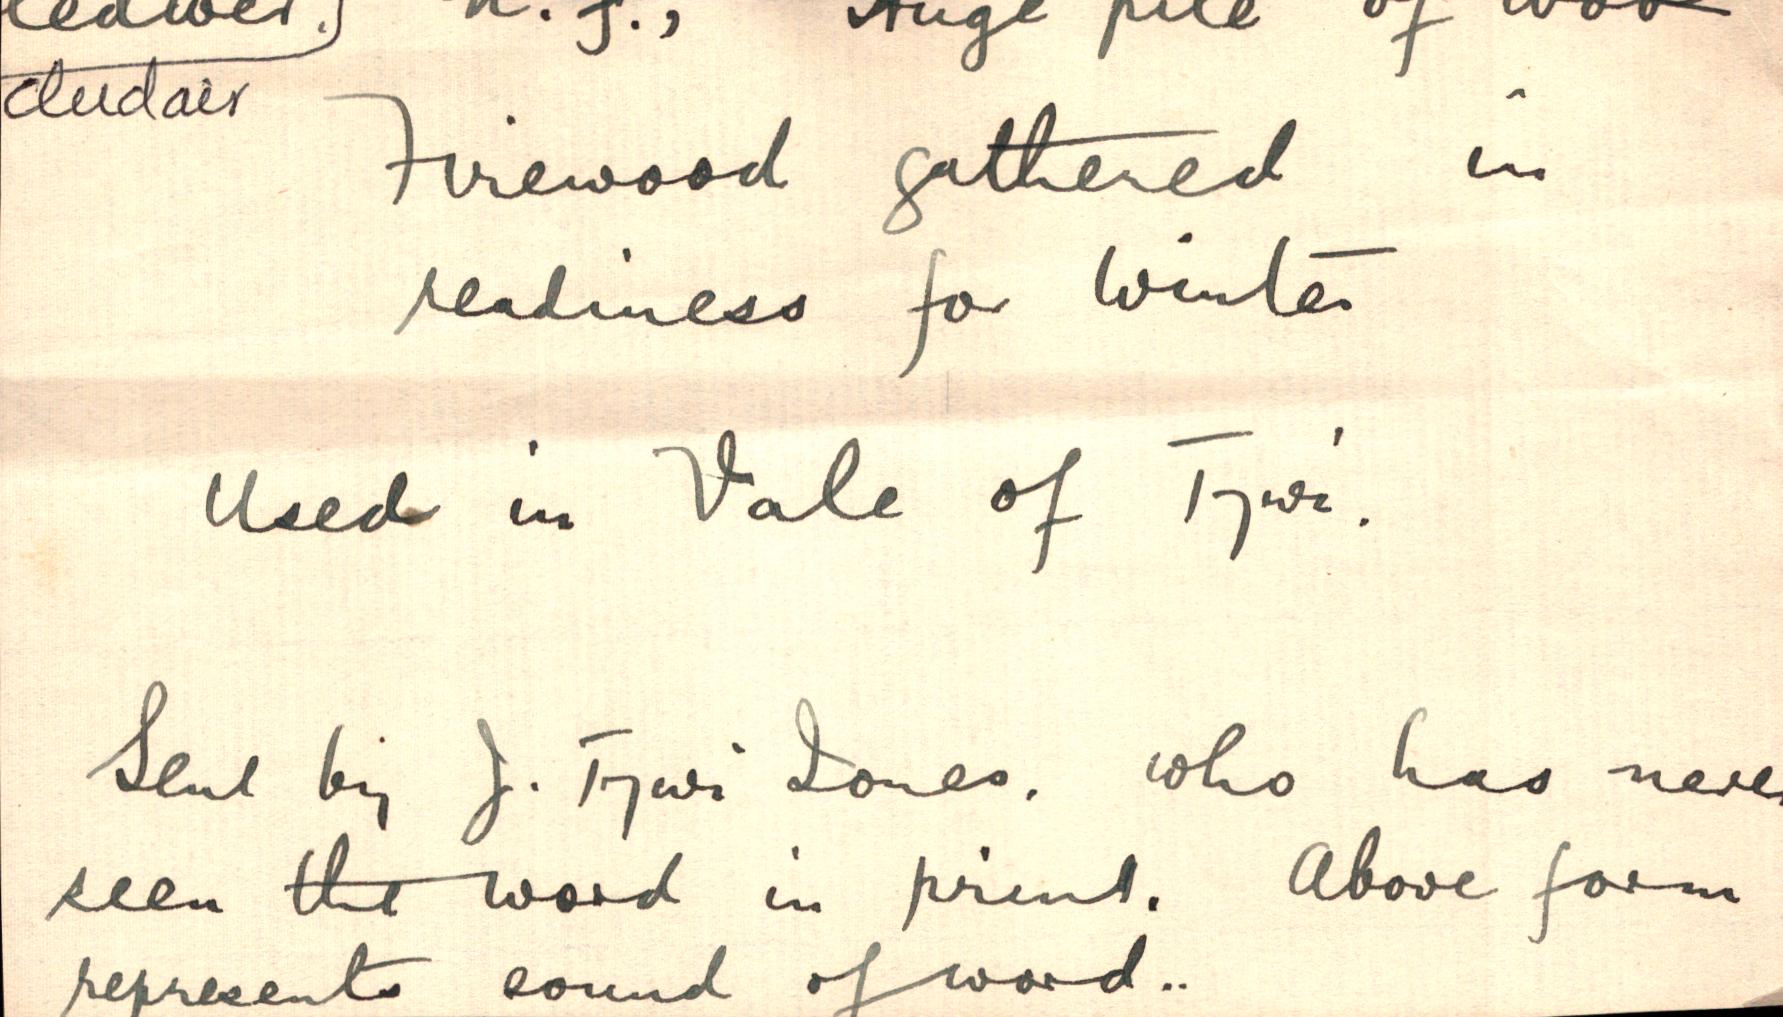 n. f., Huge pile of wood
cludair
Firewood gathered in
readiness for Winter
Used in Vale of Tywi.
Sent by J. Tywi Jones. who has never
seen the word in print. Above form
represents sound of word..